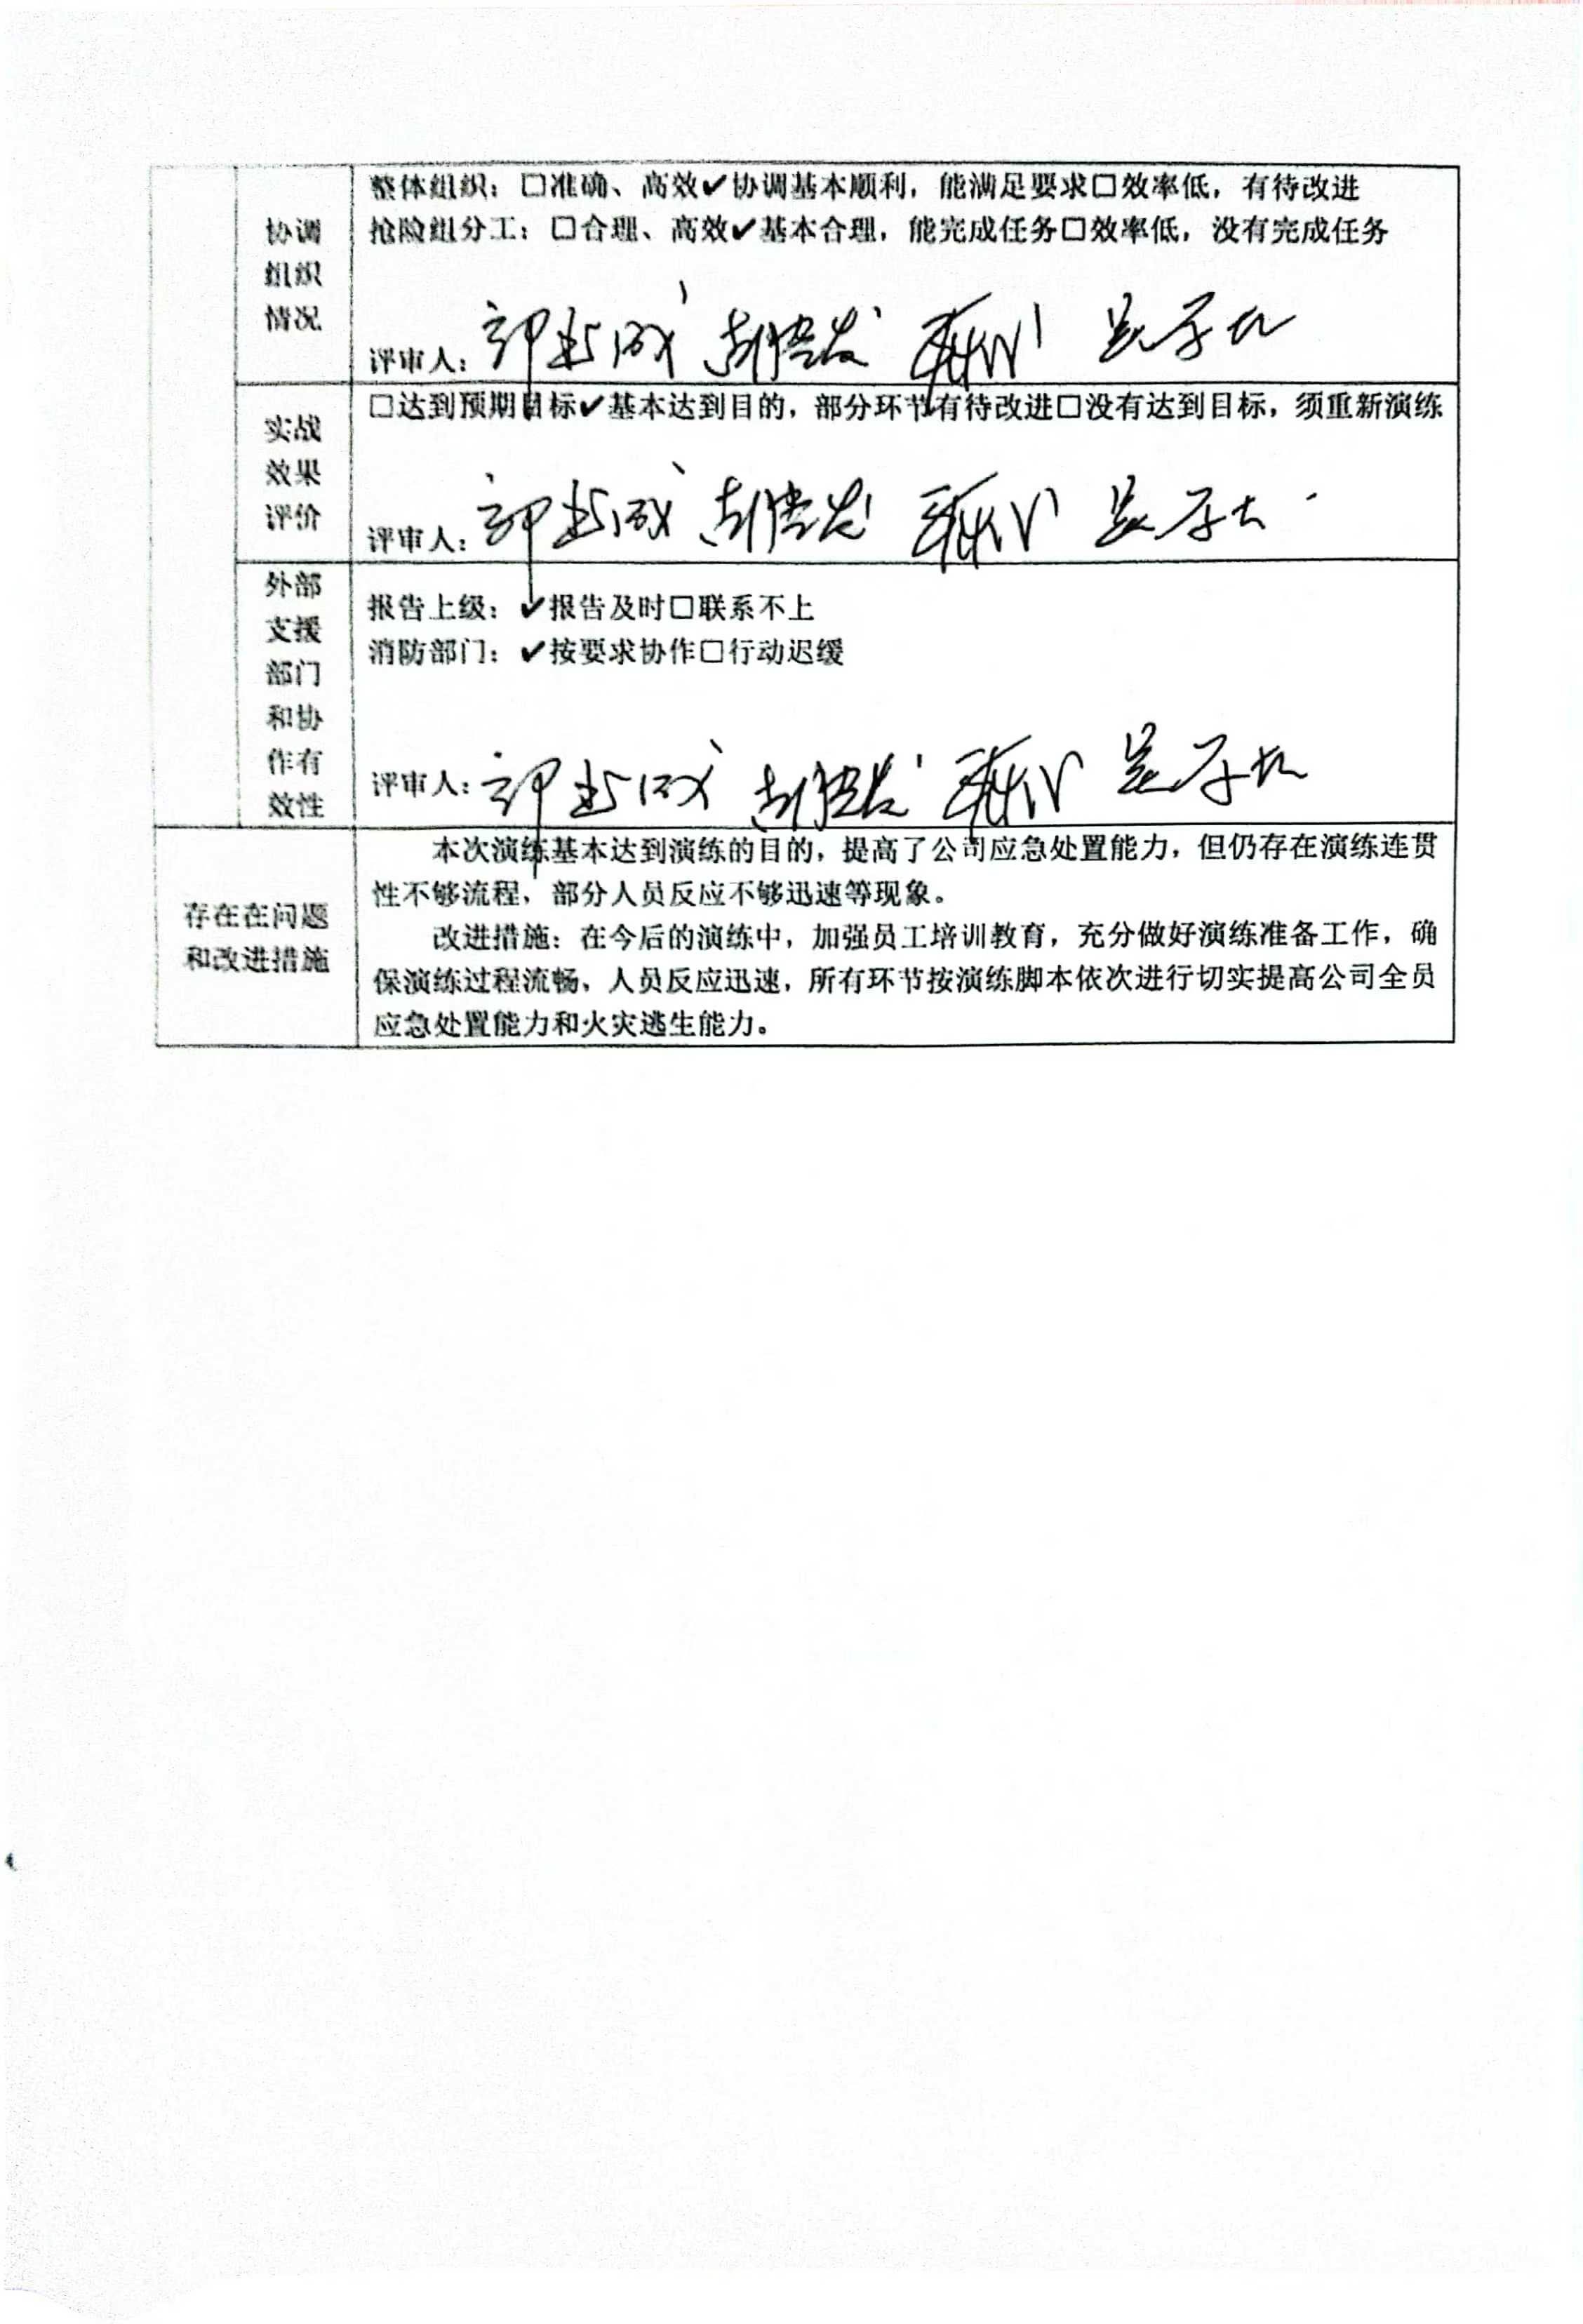 协调
组织
情况
整体组织：□准确、高效✔协调基本顺利，能满足要求□效率低，有待改进
抢险组分工：□合理、高效✔基本合理，能完成任务□效率低，没有完成任务
评审人：
实战
效果
评价
□达到预期目标✔基本达到目的，部分环节有待改进□没有达到目标，须重新演练
评审人：
外部
支援
部门
和协
作有
效性
报告上级：✔报告及时□联系不上
消防部门：✔按要求协作□行动迟缓
评审人：
存在在问题
和改进措施
本次演练基本达到演练的目的，提高了公司应急处置能力，但仍存在演练连贯
性不够流程，部分人员反应不够迅速等现象。
改进措施：在今后的演练中，加强员工培训教育，充分做好演练准备工作，确
保演练过程流畅，人员反应迅速，所有环节按演练脚本依次进行切实提高公司全员
应急处置能力和火灾逃生能力。